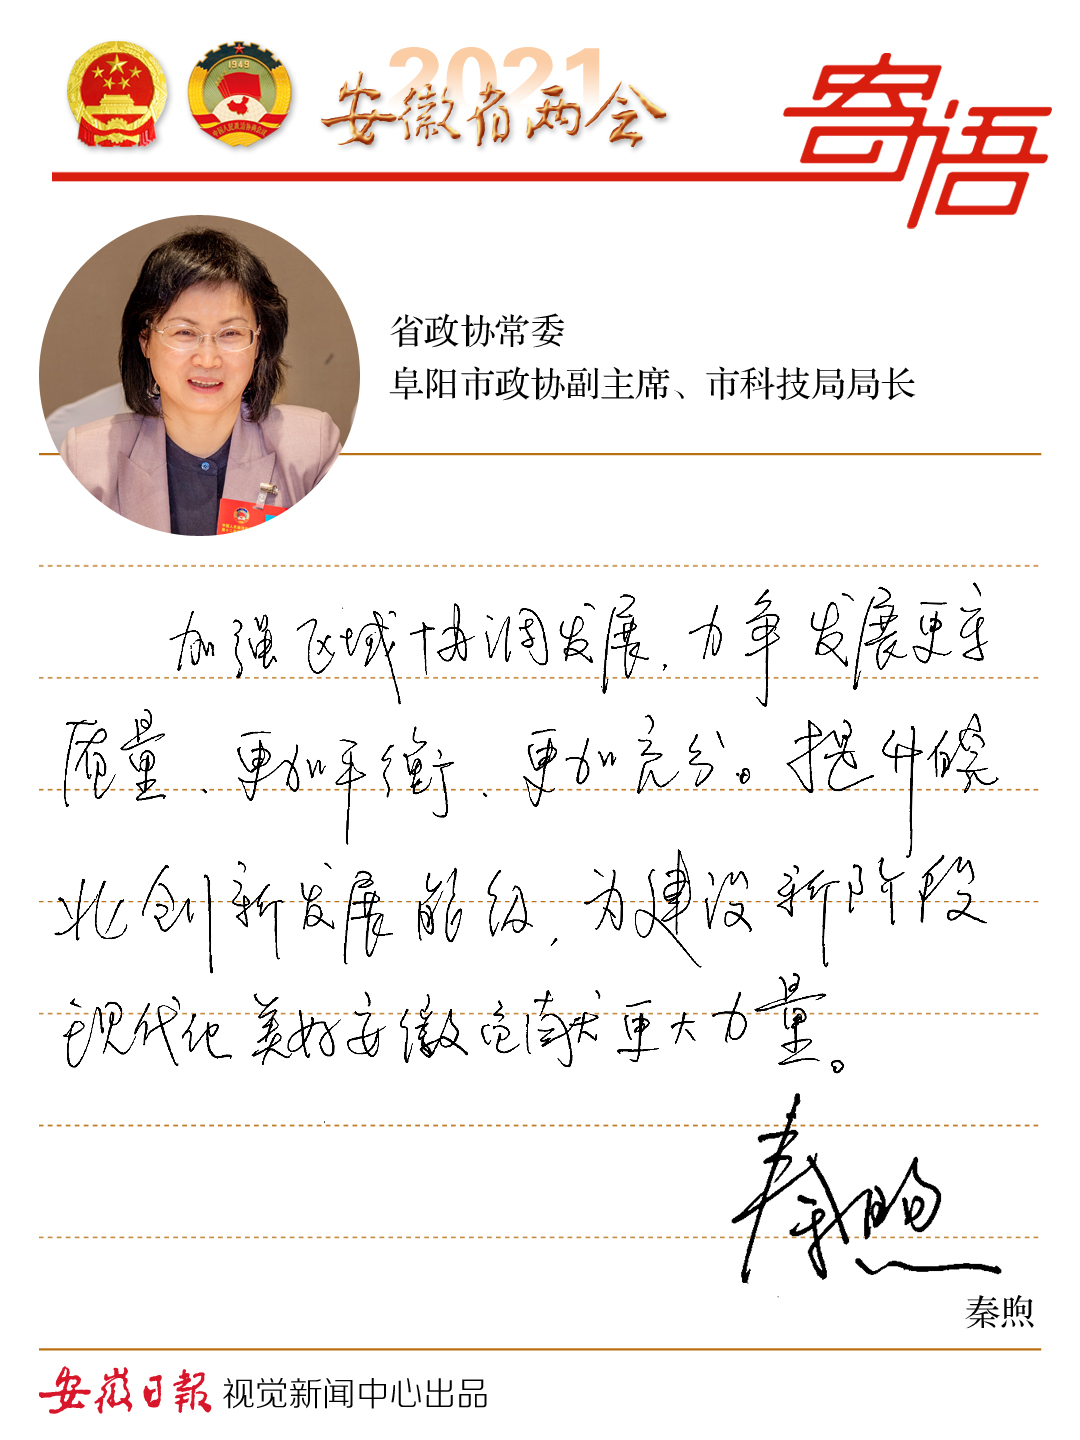 1949
2021
安徽省两会
寄语
省政协常委
阜阳市政协副主席、市科技局局长
加强区域协调发展，力争发展更高
质量、更加平衡、更加充分。提升皖
北创新发展能级，为建设新阶段
现代化美好安徽贡献更大力量。
秦煦
秦煦
安徽日報 视觉新闻中心出品